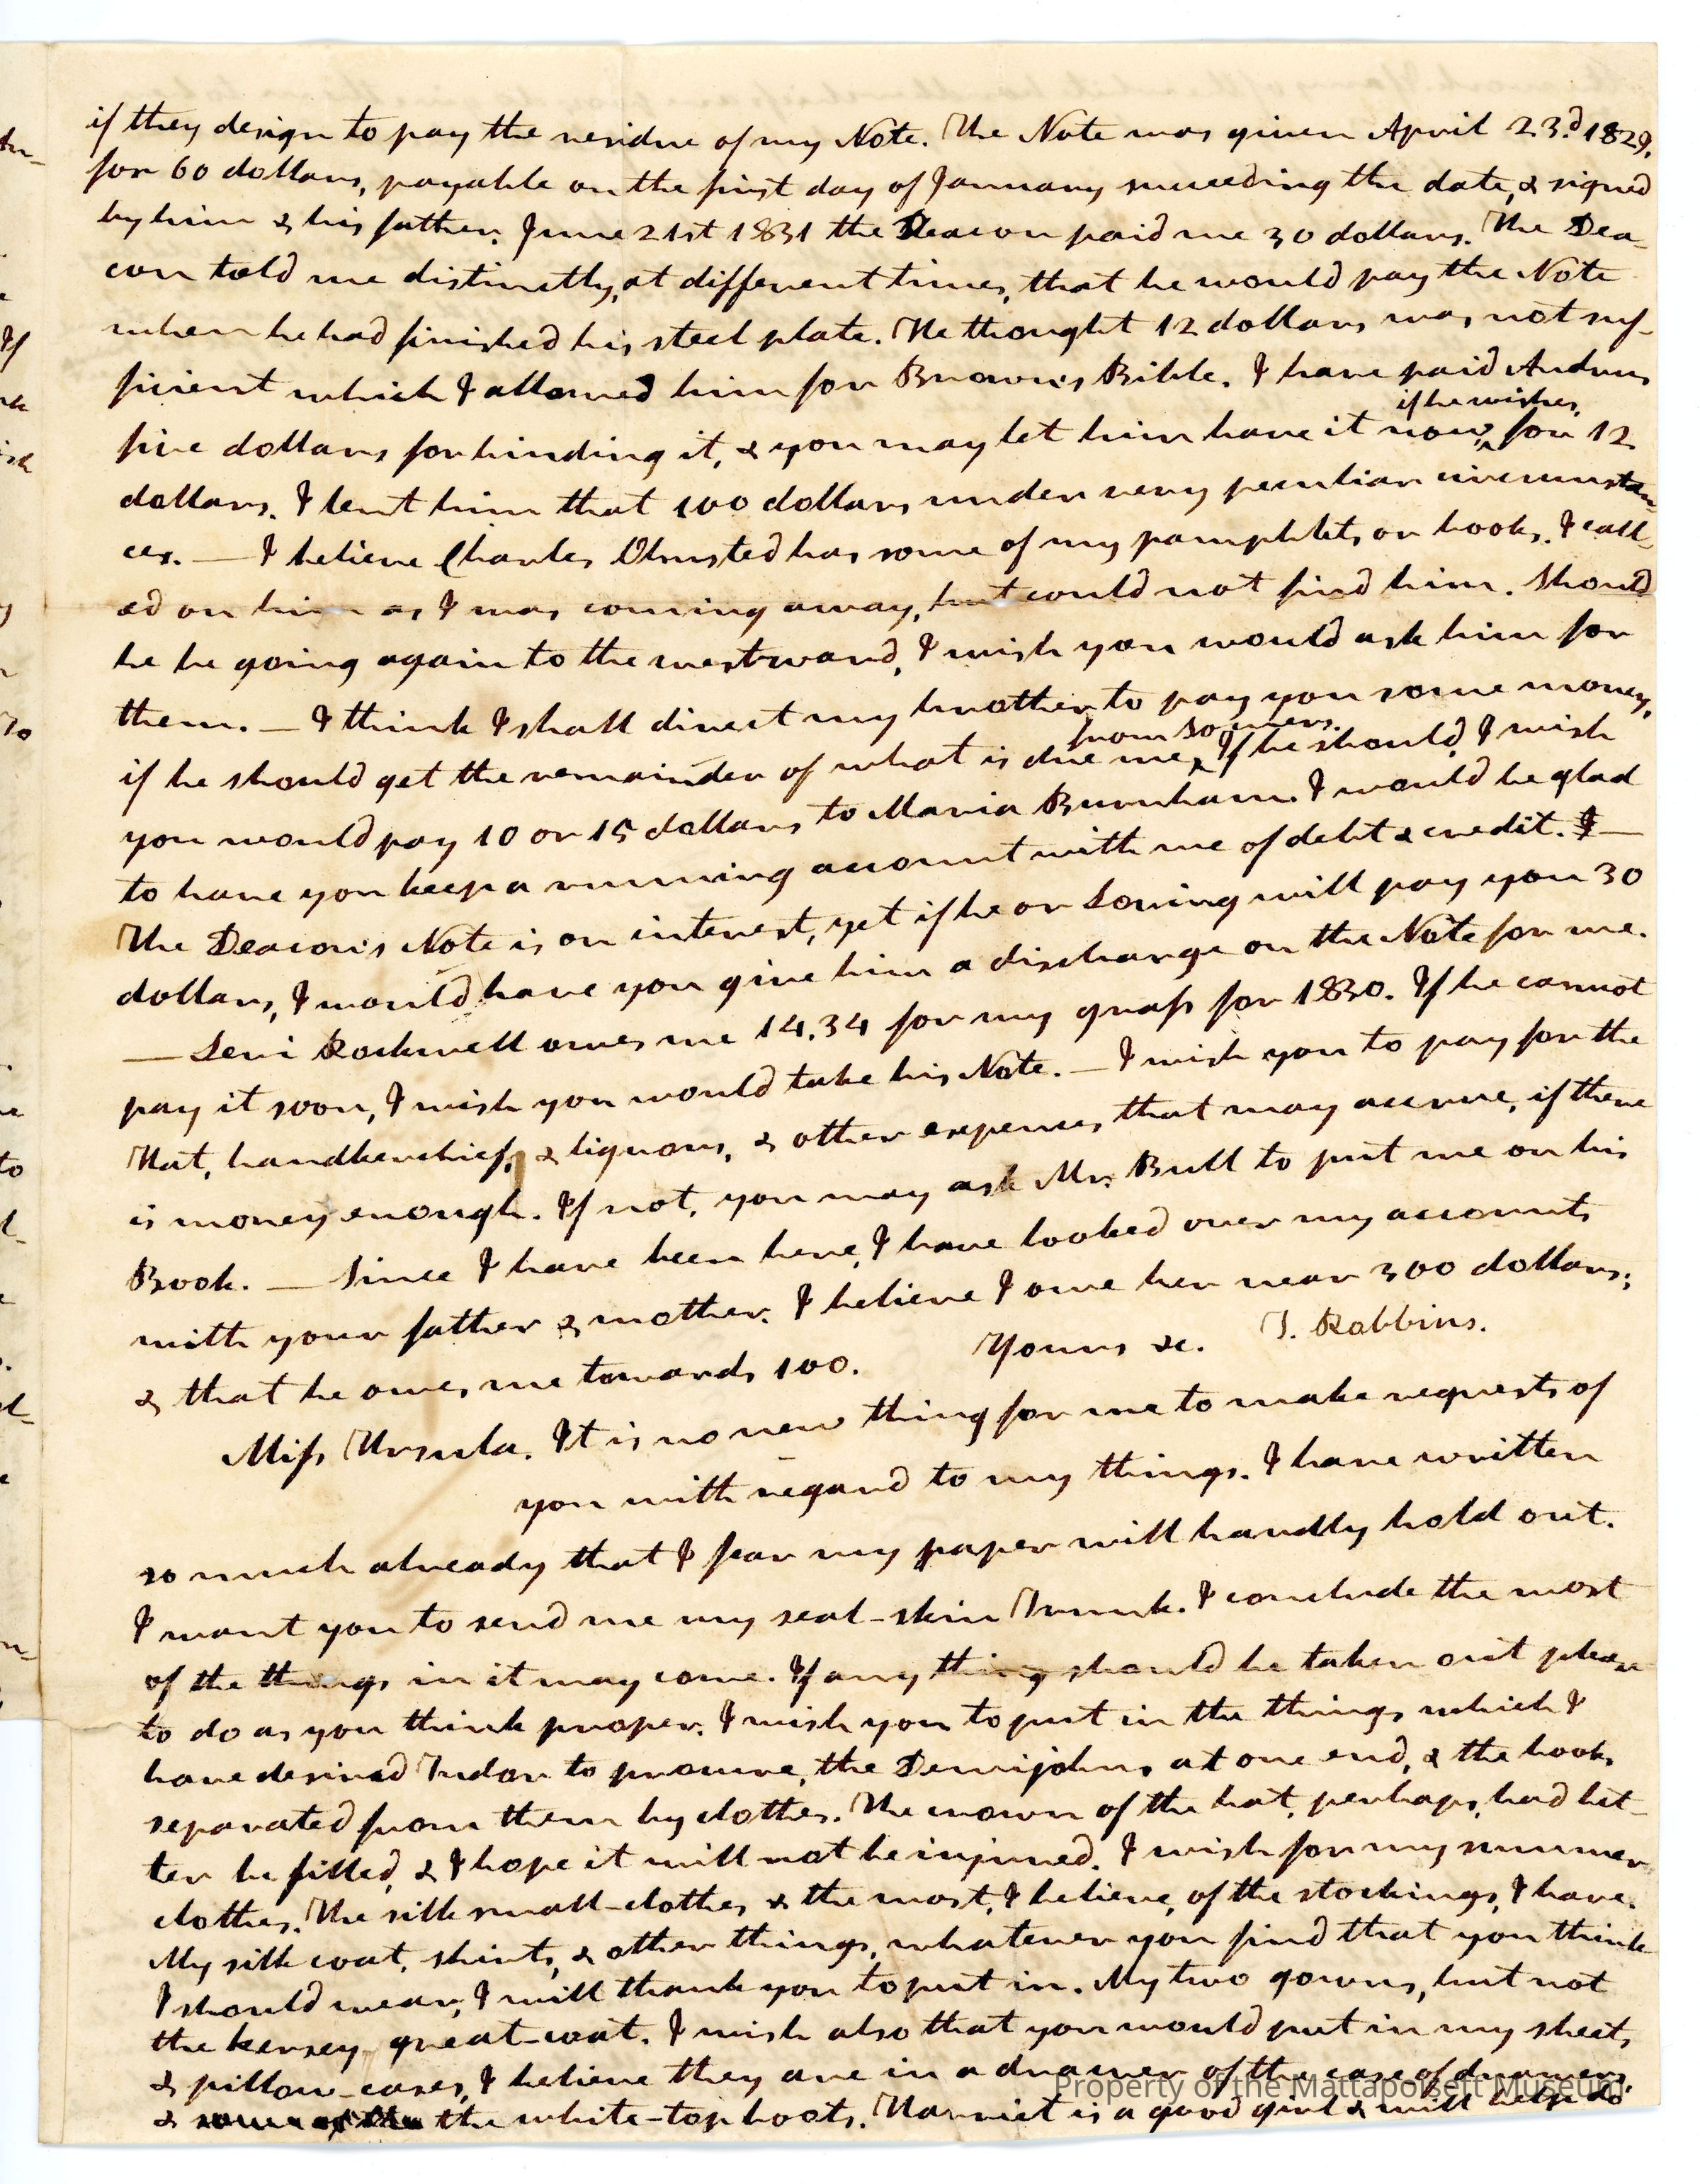 if they design to pay the residue of my Note. The Note was given April 23.d 1829,
for 60 dollars, payable on the first day of January succeeding the date, & signed
by him & his father. June 21st 1831 the Deacon paid me 30 dollars. The Dea-
con told me distinctly, at different times, that he would pay the Note
when he had finished his steel plate. He thought 12 dollars was not suf-
ficient which I allowed him for Brown's Bible. I have paid Andrus
if he wishes,
five dollars for binding it, & you may let him have it now, for 12
dollars. I lent him that 100 dollars under very peculiar circumstan
ces. — I believe Charles Olmsted has some of my pamphlets or books. I call-
ed on him as I was coming away, but could not find him. Should
he be going again to the westward, I wish you would ask him for
them. — I think I shall direct my brother to pay you some money,
from Somers.
if he should get the remainder of what is due me. If he should, I wish
you would pay 10 or 15 dollars to Maria Burnham. I would be glad
to have you keep a running account with me of debt & credit. I —
The Deacon's Note is on interest, yet if he or Loring will pay you 30
dollars, I would have you give him a discharge on the Note for me.
— Levi Rockwell owes me 14.34 for my grass for 1830. If he cannot
pay it soon, I wish you would take his Note. — I wish you to pay for the
Hat, handkerchiefs, & liquors, & other expenses that may accrue, if there
is money enough. If not, you may ask Mr. Bull to put me on his
Book. — Since I have been here, I have looked over my accounts
with your father & mother. I believe I owe her near 300 dollars;
& that he owes me towards 100. Yours &c. T. Robbins.
Miss Ursula. It is no new thing for me to make requests of
you with regard to my things. I have written
so much already that I fear my paper will hardly hold out.
I want you to send me my seal-skin Trunk. I conclude the most
of the things in it may come. If any thing should be taken out please
to do as you think proper. I wish you to put in the things which I
have desired Tudor to procure, the Demijohns at one end, & the books
separated from them by clothes. The crown of the hat, perhaps, had bet-
ter be filled, & I hope it will not be injured. I wish for my summer
clothes. The silk small-clothes & the most, I believe, of the stockings, I have.
My silk coat, shirts, & other things, whatever you find that you think
I should wear, I will thank you to put in. My two gowns, but not
the kersey great-coat. I wish also that you would put in my sheets
& pillow-cases, I believe they are in a drawer of the case of drawers.
& some of the the white-top boots. Harriet is a good girl & will help do
Property of the Mattapoisett Museum